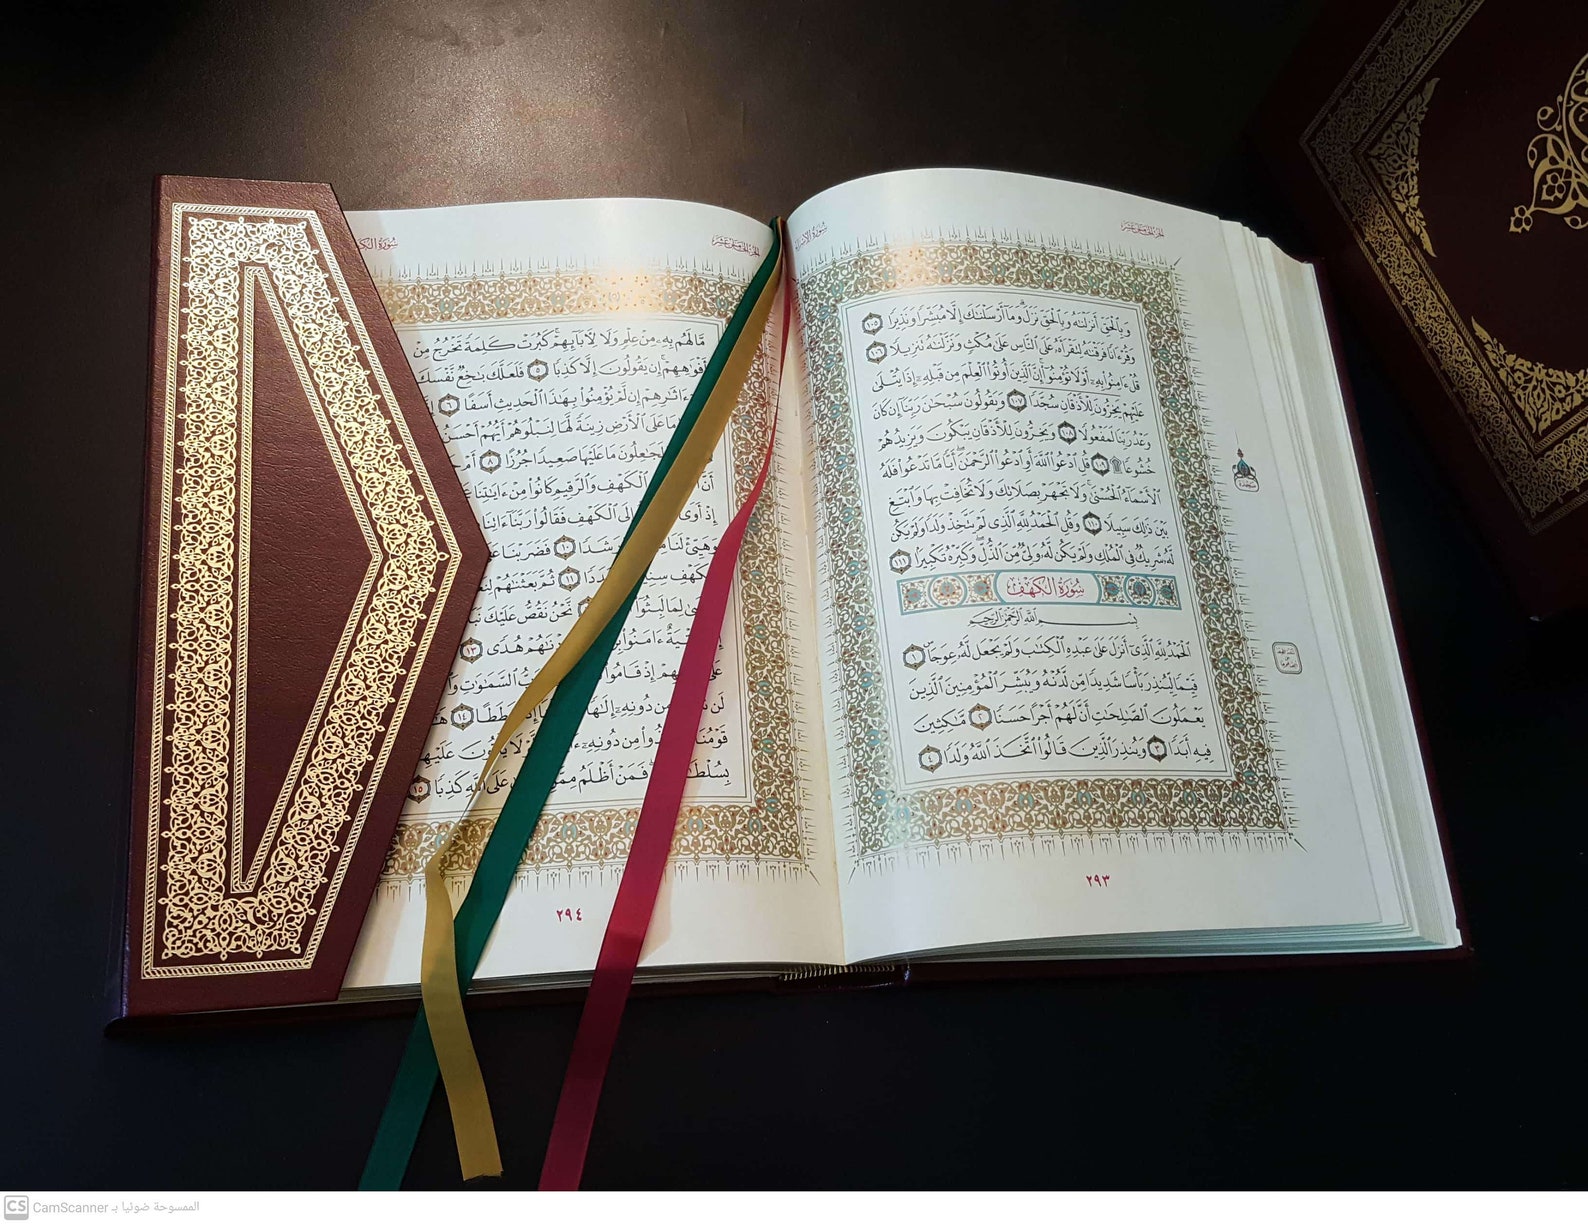 سُورَةُ الإِسۡرَاءِ
الجُزۡءُ الخَامِسَ عَشَرَ
وَبِٱلۡحَقِّ أَنزَلۡنَٰهُ وَبِٱلۡحَقِّ نَزَلَۗ وَمَآ أَرۡسَلۡنَٰكَ إِلَّا مُبَشِّرٗا وَنَذِيرٗا ١٠٥
وَقُرۡءَانٗا فَرَقۡنَٰهُ لِتَقۡرَأَهُۥ عَلَى ٱلنَّاسِ عَلَىٰ مُكۡثٖ وَنَزَّلۡنَٰهُ تَنزِيلٗا ١٠٦
قُلۡ ءَامِنُواْ بِهِۦٓ أَوۡ لَا تُؤۡمِنُوٓاْۚ إِنَّ ٱلَّذِينَ أُوتُواْ ٱلۡعِلۡمَ مِن قَبۡلِهِۦٓ إِذَا يُتۡلَىٰ
عَلَيۡهِمۡ يَخِرُّونَۤ لِلۡأَذۡقَانِۤ سُجَّدٗاۤ ١٠٧ وَيَقُولُونَ سُبۡحَٰنَ رَبِّنَآ إِن كَانَ
وَعۡدُ رَبِّنَا لَمَفۡعُولٗا ١٠٨ وَيَخِرُّونَ لِلۡأَذۡقَانِ يَبۡكُونَ وَيَزِيدُهُمۡ
خُشُوعٗا ۩ ١٠٩ قُلِ ٱدۡعُواْ ٱللَّهَ أَوِ ٱدۡعُواْ ٱلرَّحۡمَٰنَۖ أَيّٗا مَّا تَدۡعُواْ فَلَهُ
ٱلۡأَسۡمَآءُ ٱلۡحُسۡنَىٰۚ وَلَا تَجۡهَرۡ بِصَلَاتِكَ وَلَا تُخَافِتۡ بِهَا وَٱبۡتَغِ
بَيۡنَ ذَٰلِكَ سَبِيلٗا ١١٠ وَقُلِ ٱلۡحَمۡدُ لِلَّهِ ٱلَّذِي لَمۡ يَتَّخِذۡ وَلَدٗا وَلَمۡ يَكُن
لَّهُۥ شَرِيكٞ فِي ٱلۡمُلۡكِ وَلَمۡ يَكُن لَّهُۥ وَلِيّٞ مِّنَ ٱلذُّلِّۖ وَكَبِّرۡهُ تَكۡبِيرَۢا ١١١
سُورَةُ الكَهۡفِ
بِسۡمِ ٱللَّهِ ٱلرَّحۡمَٰنِ ٱلرَّحِيمِ
ٱلۡحَمۡدُ لِلَّهِ ٱلَّذِيٓ أَنزَلَ عَلَىٰ عَبۡدِهِ ٱلۡكِتَٰبَ وَلَمۡ يَجۡعَل لَّهُۥ عِوَجَاۜ ١
قَيِّمٗا لِّيُنذِرَ بَأۡسٗا شَدِيدٗا مِّن لَّدُنۡهُ وَيُبَشِّرَ ٱلۡمُؤۡمِنِينَ ٱلَّذِينَ
يَعۡمَلُونَ ٱلصَّٰلِحَٰتِ أَنَّ لَهُمۡ أَجۡرًا حَسَنٗا ٢ مَّٰكِثِينَ
فِيهِ أَبَدٗا ٣ وَيُنذِرَ ٱلَّذِينَ قَالُواْ ٱتَّخَذَ ٱللَّهُ وَلَدٗا ٤
٢٩٣
سُورَةُ الكَهۡ
الجُزۡءُ الخَامِسَ عَشَرَ
مَّا لَهُم بِهِۦ مِنۡ عِلۡمٖ وَلَا لِأٓبَآئِهِمۡۚ كَبُرَتۡ كَلِمَةٗ تَخۡرُجُ مِنۡ
أَفۡوَٰهِهِمۡۚ إِن يَقُولُونَ إِلَّا كَذِبٗا ٥ فَلَعَلَّكَ بَٰخِعٞ نَّفۡسَكَ
ءَاثَٰرِهِمۡ إِن لَّمۡ يُؤۡمِنُواْ بِهَٰذَا ٱلۡحَدِيثِ أَسَفًا ٦
مَا عَلَى ٱلۡأَرۡضِ زِينَةٗ لَّهَا لِنَبۡلُوَهُمۡ أَيُّهُمۡ أَحۡسَنُ
لَجَٰعِلُونَ مَا عَلَيۡهَا صَعِيدٗا جُرُزًا ٨ أَمۡ
أَنَّ ٱلۡكَهۡفِ وَٱلرَّقِيمِ كَانُواْ مِنۡ ءَايَٰتِنَا
إِذۡ أَوَى إِلَى ٱلۡكَهۡفِ فَقَالُواْ رَبَّنَآ ءَاتِنَا
وَهَيِّئۡ لَنَا رَشَدٗا ١٠ فَضَرَبۡنَا
ٱلۡكَهۡفِ سِنِينَ عَدَدٗا ١١ ثُمَّ بَعَثۡنَٰهُمۡ
لِمَا لَبِثُوٓاْ نَحۡنُ نَقُصُّ عَلَيۡكَ
ءَامَنُواْ هُدٗى ١٣
إِذۡ قَامُواْ ٱلسَّمَٰوَٰتِ
لَن مِن دُونِهِۦٓ إِلَٰهٗا شَطَطًا ١٤
قَوۡمُنَا مِن دُونِهِۦٓ لَّوۡلَا يَأۡتُونَ عَلَيۡهِم
فَمَنۡ أَظۡلَمُ عَلَى ٱللَّهِ كَذِبٗا ١٥
٢٩٤
CS CamScanner الممسوحة ضوئيا بـ